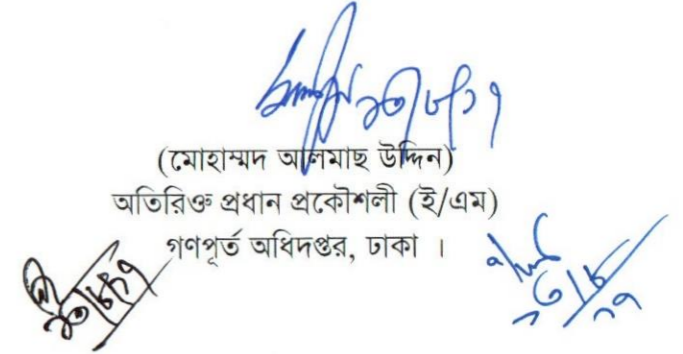 ১৩/৮/১৭
(মোহাম্মদ আলমাছ উদ্দিন)
অতিরিক্ত প্রধান প্রকৌশলী (ই/এম)
গণপূর্ত অধিদপ্তর, ঢাকা ।